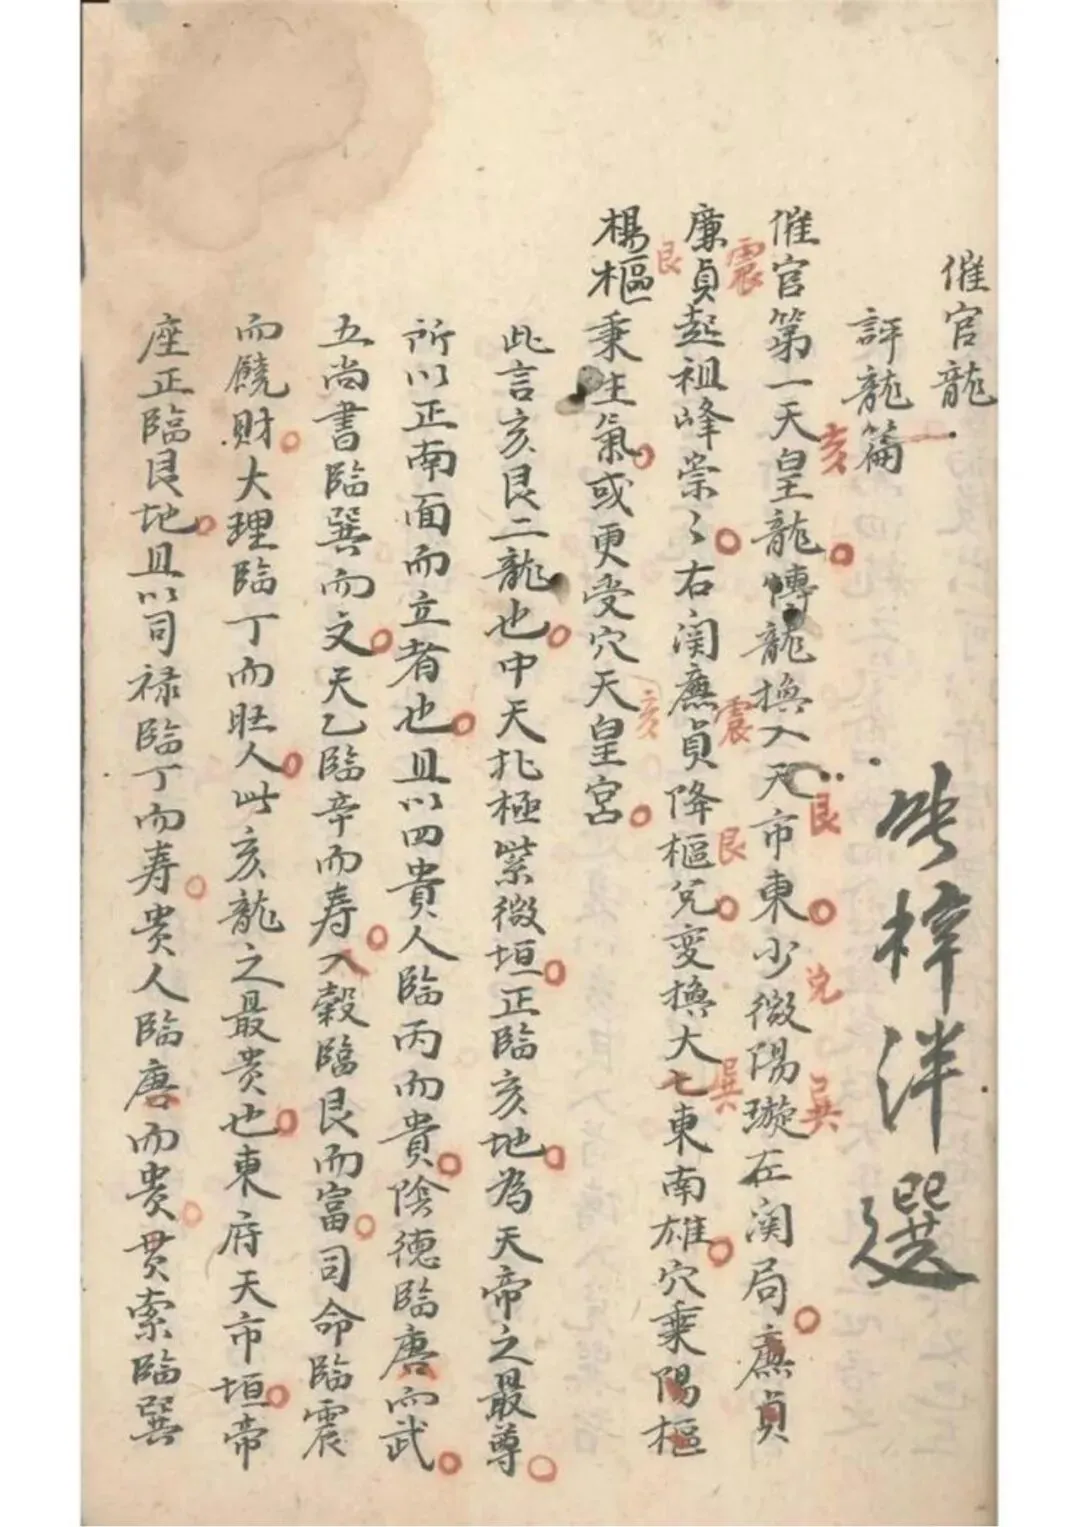 催官龍
評龍篇
張梓洋選
催官第一天皇龍博龍換入天市東少微陽璇在闗局廉貞
亥
艮
兌
巽
廉貞起祖峰崇々右闗廉貞降樞兌变換大七東南雄穴乗陽樞
震
震
艮
巽
楊樞秉生氣或更受穴天皇宮
艮
亥
此言亥艮二龍也中天北極紫微垣正臨亥地為天帝之最尊
所以正南面而立者也且以四貴人臨丙而貴陰德臨庚而武
五尚書臨巽而文天乙臨辛而寿八穀臨艮而富司命臨震
而饒财大理臨丁而旺人此亥龍之最贵也東府天市垣帝
座正臨艮地且以司禄臨丁而寿贵人臨庚而贵贯索臨巽